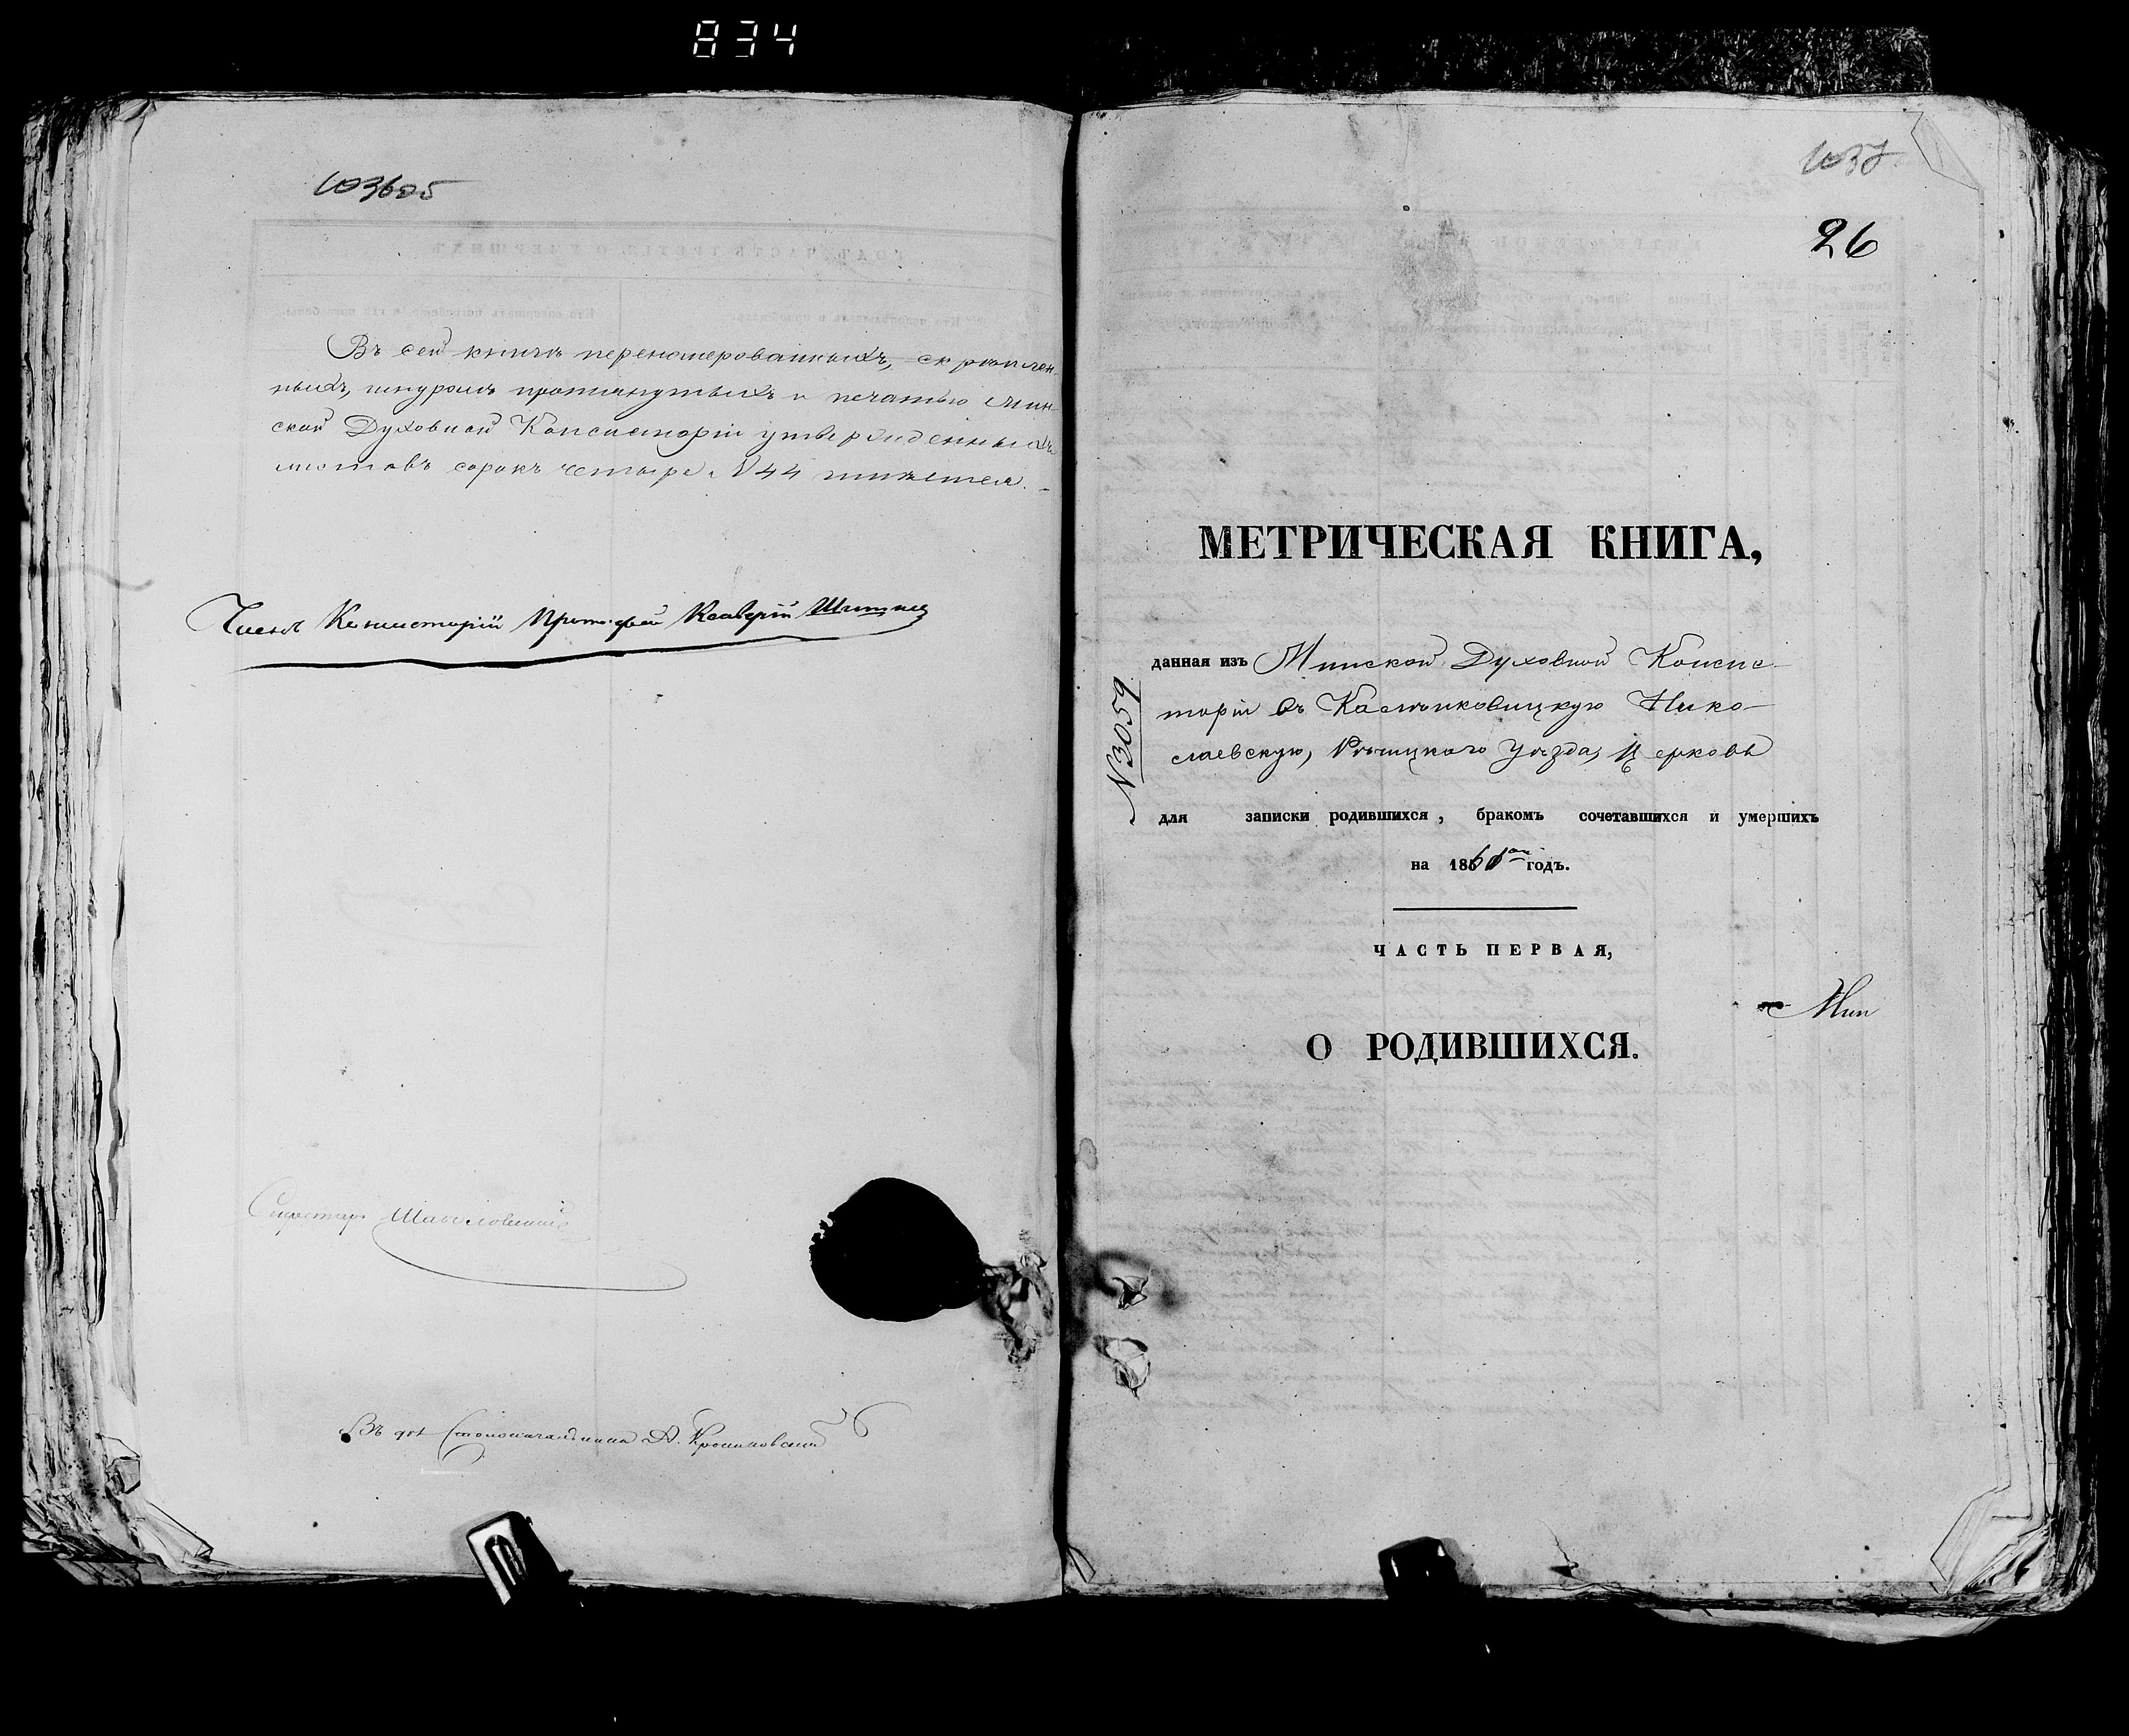 834
Въ сей книгѣ перенумерованныхъ, скрѣплен-
ныхъ, шнуромъ протянутыхъ и печатью Мин-
ской Духовной Консисторіи утвержденныхъ
листовъ сорокъ четыре N 44 имѣется.
Членъ Консисторіи Протоіерей
Секретарь
Въ дол Столоначальника А.
26
МЕТРИЧЕСКАЯ КНИГА,
данная изъ Минской Духовной Консис-
торіи въ Каленковицкую Нико-
лаевскую, Рѣчицкаго уѣзда, Церковь
N 3059
для записки родившихся, бракомъ сочетавшихся и умершихъ
на 186 годъ.
ЧАСТЬ ПЕРВАЯ,
Мин
О РОДИВШИХСЯ.